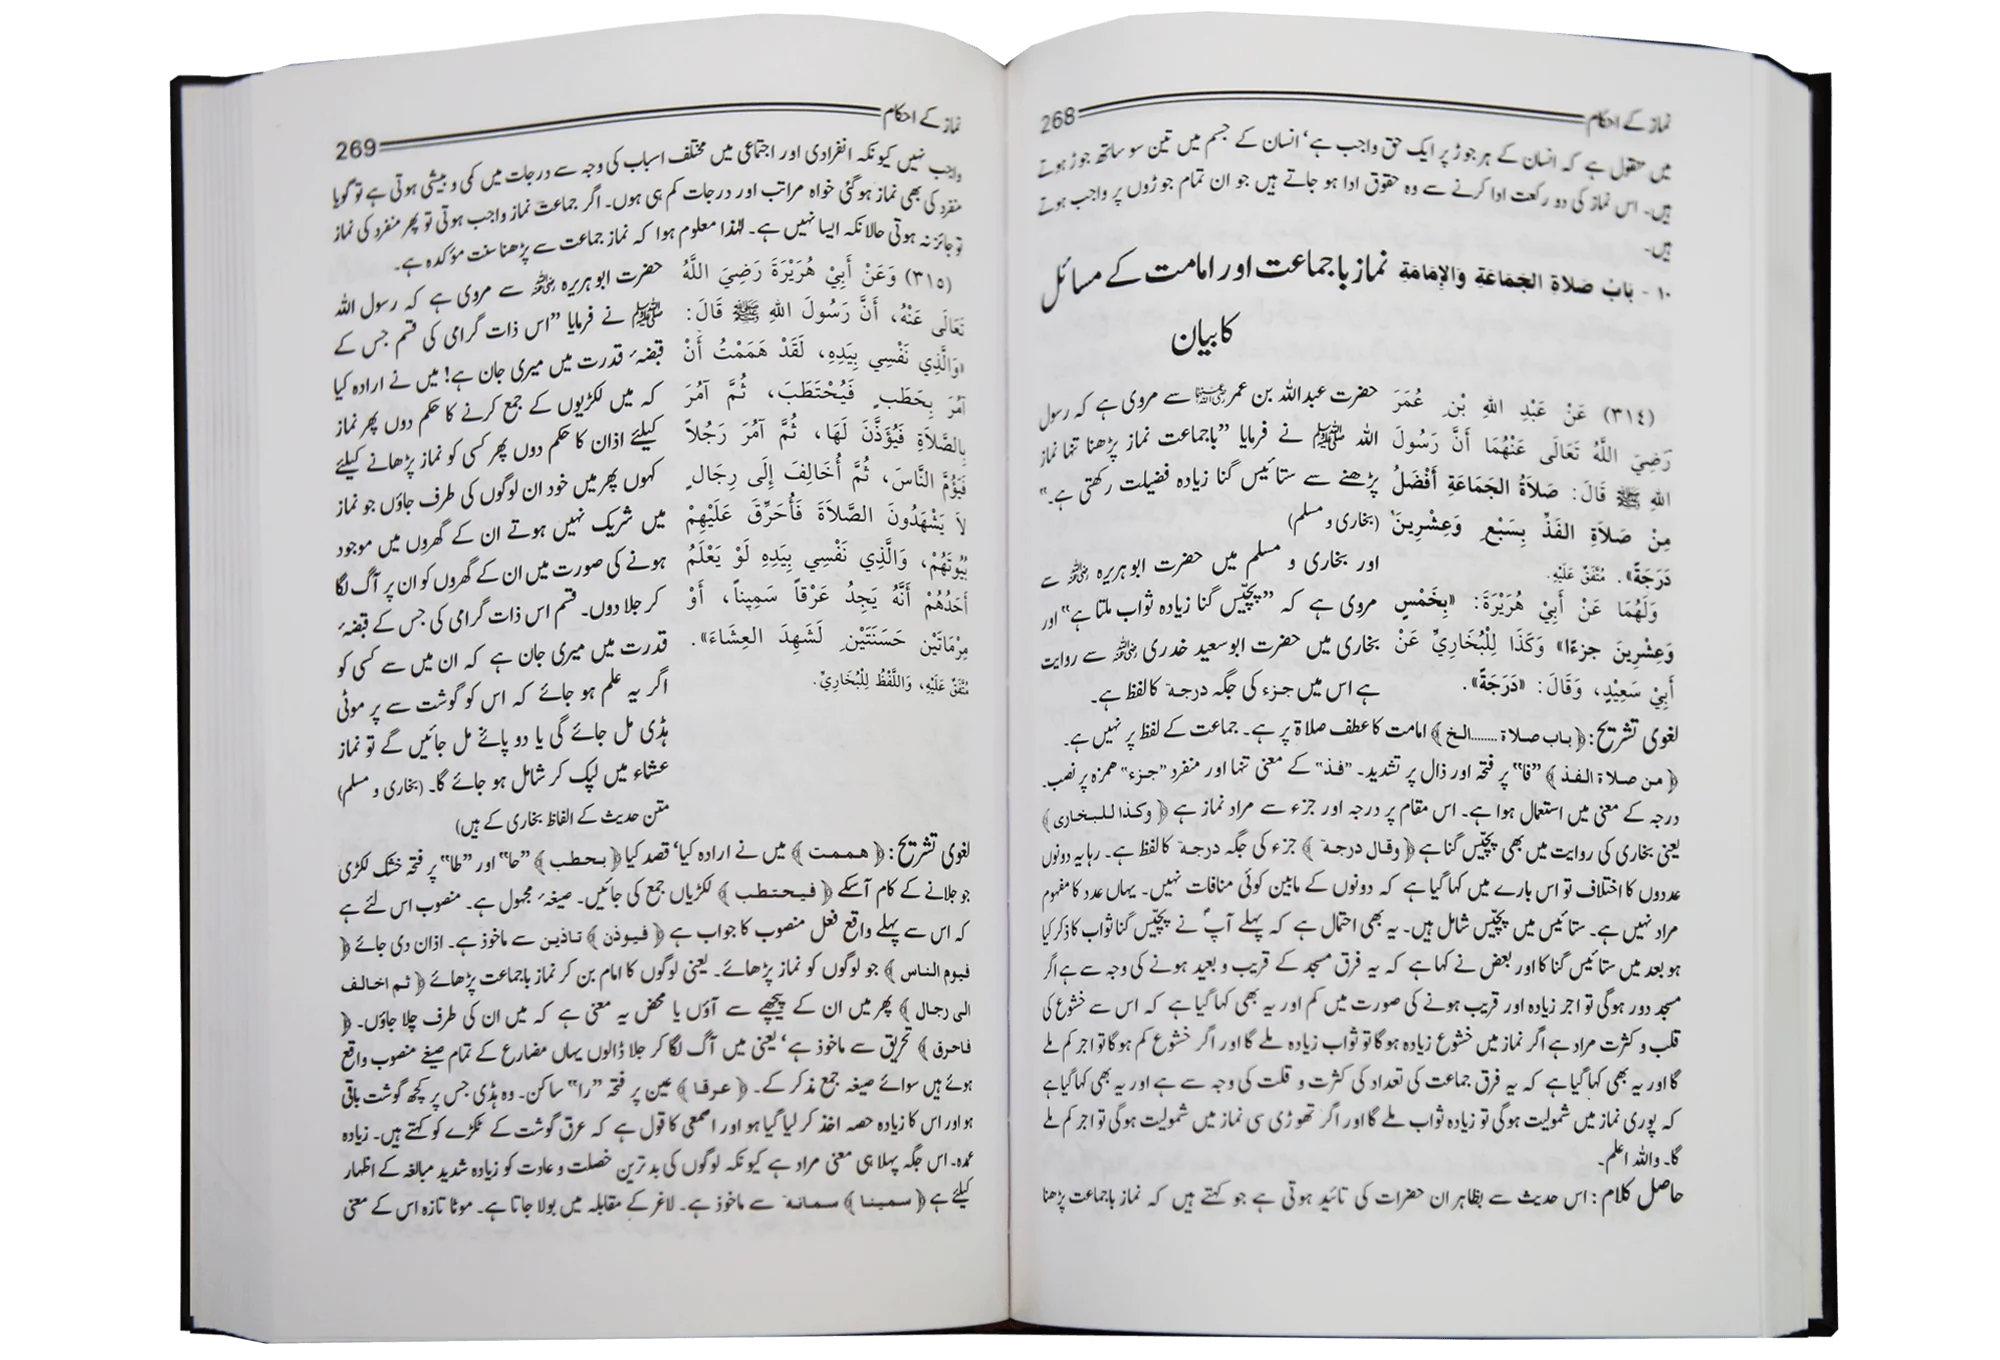 نماز کے احکام 268
میں منقول ہے کہ انسان کے ہر جوڑ پر ایک حق واجب ہے' انسان کے جسم میں تین سو ساٹھ جوڑ ہوتے
ہیں۔ اس نماز کی دو رکعت ادا کرنے سے وہ حقوق ادا ہو جاتے ہیں جو ان تمام جوڑوں پر واجب ہوتے
ہیں۔
١٠ - بَابُ صَلَاةِ الجَمَاعَةِ وَالإِمَامَةِ نماز باجماعت اور امامت کے مسائل
کا بیان
(٣١٤) عَنْ عَبْدِ اللهِ بْنِ عُمَرَ
رَضِيَ اللَّهُ تَعَالَى عَنْهُمَا أَنَّ رَسُولَ
اللهِ ﷺ قَالَ: صَلَاةُ الجَمَاعَةِ أَفْضَلُ
مِنْ صَلَاةِ الفَذِّ بِسَبْعٍ وَعِشْرِينَ
دَرَجَةً». مُتَّفَقٌ عَلَيْهِ.
وَلَهُمَا عَنْ أَبِيْ هُرَيْرَةَ: «بِخَمْسٍ
وَعِشْرِينَ جزءًا» وَكَذَا لِلْبُخَارِيِّ عَنْ
أَبِيْ سَعِيْدٍ، وَقَالَ: «دَرَجَةً».
حضرت عبداللہ بن عمر رضی اللہ عنہما سے مروی ہے کہ رسول
اللہ ﷺ نے فرمایا "باجماعت نماز پڑھنا تنہا نماز
پڑھنے سے ستائیس گنا زیادہ فضیلت رکھتی ہے۔"
(بخاری و مسلم)
اور بخاری و مسلم میں حضرت ابو ہریرہ رضی اللہ عنہ سے
مروی ہے کہ "پچیس گنا زیادہ ثواب ملتا ہے" اور
بخاری میں حضرت ابوسعید خدری رضی اللہ عنہ سے روایت
ہے اس میں جزء کی جگہ درجۃ کا لفظ ہے۔
لغوی تشریح: ﴿باب صلاة.......الخ﴾ امامت کا عطف صلاۃ پر ہے۔ جماعت کے لفظ پر نہیں ہے۔
﴿من صلاة الفذ﴾ "فا" پر فتحہ اور ذال پر تشدید۔ "فذ" کے معنی تنہا اور منفرد "جزء" ھمزہ پر نصب۔
درجہ کے معنی میں استعمال ہوا ہے۔ اس مقام پر درجہ اور جزء سے مراد نماز ہے ﴿وكذا للبخاري﴾
یعنی بخاری کی روایت میں بھی پچیس گنا ہے ﴿وقال درجة﴾ جزء کی جگہ درجۃ کا لفظ ہے۔ رہا یہ دونوں
عددوں کا اختلاف تو اس بارے میں کہا گیا ہے کہ دونوں کے مابین کوئی منافات نہیں۔ یہاں عدد کا مفہوم
مراد نہیں ہے۔ ستائیس میں پچیس شامل ہیں۔ یہ بھی احتمال ہے کہ پہلے آپؐ نے پچیس گنا ثواب کا ذکر کیا
ہو بعد میں ستائیس گنا کا اور بعض نے کہا ہے کہ یہ فرق مسجد کے قریب و بعید ہونے کی وجہ سے ہے اگر
مسجد دور ہوگی تو اجر زیادہ اور قریب ہونے کی صورت میں کم اور یہ بھی کہا گیا ہے کہ اس سے خشوع کی
قلت و کثرت مراد ہے اگر نماز میں خشوع زیادہ ہوگا تو ثواب زیادہ ملے گا اور اگر خشوع کم ہوگا تو اجر کم ملے
گا اور یہ بھی کہا گیا ہے کہ یہ فرق جماعت کی تعداد کی کثرت و قلت کی وجہ سے ہے اور یہ بھی کہا گیا ہے
کہ پوری نماز میں شمولیت ہوگی تو زیادہ ثواب ملے گا اور اگر تھوڑی سی نماز میں شمولیت ہوگی تو اجر کم ملے
گا۔ واللہ اعلم۔
حاصل کلام: اس حدیث سے بظاہر ان حضرات کی تائید ہوتی ہے جو کہتے ہیں کہ نماز باجماعت پڑھنا
نماز کے احکام 269
واجب نہیں کیونکہ انفرادی اور اجتماعی میں مختلف اسباب کی وجہ سے درجات میں کمی و بیشی ہوتی ہے تو گویا
منفرد کی بھی نماز ہوگئی خواہ مراتب اور درجات کم ہی ہوں۔ اگر جماعت نماز واجب ہوتی تو پھر منفرد کی نماز
تو جائز نہ ہوتی حالانکہ ایسا نہیں ہے۔ لہٰذا معلوم ہوا کہ نماز جماعت سے پڑھنا سنت مؤکدہ ہے۔
(٣١٥) وَعَنْ أَبِيْ هُرَيْرَةَ رَضِيَ اللَّهُ
تَعَالَى عَنْهُ، أَنَّ رَسُولَ اللهِ ﷺ قَالَ:
«وَالَّذِي نَفْسِي بِيَدِهِ، لَقَدْ هَمَمْتُ أَنْ
آمُرَ بِحَطَبٍ فَيُحْتَطَبَ، ثُمَّ آمُرَ
بِالصَّلَاةِ فَيُؤَذَّنَ لَهَا، ثُمَّ آمُرَ رَجُلاً
فَيَؤُمَّ النَّاسَ، ثُمَّ أُخَالِفَ إِلَى رِجَالٍ
لاَ يَشْهَدُونَ الصَّلاَةَ فَأُحَرِّقَ عَلَيْهِمْ
بُيُوتَهُمْ، وَالَّذِي نَفْسِي بِيَدِهِ لَوْ يَعْلَمُ
أَحَدُهُمْ أَنَّهُ يَجِدُ عَرْقاً سَمِيناً، أَوْ
مِرْمَاتَيْنِ حَسَنَتَيْنِ لَشَهِدَ العِشَاءَ».
مُتَّفَقٌ عَلَيْهِ، وَاللَّفْظُ لِلْبُخَارِيِّ.
حضرت ابو ہریرہ رضی اللہ عنہ سے مروی ہے کہ رسول اللہ
ﷺ نے فرمایا "اس ذات گرامی کی قسم جس کے
قبضہء قدرت میں میری جان ہے! میں نے ارادہ کیا
کہ میں لکڑیوں کے جمع کرنے کا حکم دوں پھر نماز
کیلئے اذان کا حکم دوں پھر کسی کو نماز پڑھانے کیلئے
کہوں پھر میں خود ان لوگوں کی طرف جاؤں جو نماز
میں شریک نہیں ہوتے ان کے گھروں میں موجود
ہونے کی صورت میں ان کے گھروں کو ان پر آگ لگا
کر جلا دوں۔ قسم اس ذات گرامی کی جس کے قبضہء
قدرت میں میری جان ہے کہ ان میں سے کسی کو
اگر یہ علم ہو جائے کہ اس کو گوشت سے پر موٹی
ہڈی مل جائے گی یا دو پائے مل جائیں گے تو نماز
عشاء میں لپک کر شامل ہو جائے گا۔ (بخاری و مسلم)
متن حدیث کے الفاظ بخاری کے ہیں)
لغوی تشریح: ﴿هممت﴾ میں نے ارادہ کیا' قصد کیا ﴿بحطب﴾ "حا" اور "طا" پر فتحہ خشک لکڑی
جو جلانے کے کام آسکے ﴿فيحتطب﴾ لکڑیاں جمع کی جائیں۔ صیغہء مجہول ہے۔ منصوب اس لئے ہے
کہ اس سے پہلے واقع فعل منصوب کا جواب ہے ﴿فيوذن﴾ تاذین سے ماخوذ ہے۔ اذان دی جائے ﴿
فيوم الناس﴾ جو لوگوں کو نماز پڑھائے۔ یعنی لوگوں کا امام بن کر نماز باجماعت پڑھائے ﴿ثم اخالف
الى رجال﴾ پھر میں ان کے پیچھے سے آؤں یا محض یہ معنی ہے کہ میں ان کی طرف چلا جاؤں۔ ﴿
فاحرق﴾ تحریق سے ماخوذ ہے' یعنی میں آگ لگا کر جلا ڈالوں یہاں مضارع کے تمام صیغے منصوب واقع
ہوئے ہیں سوائے صیغہ جمع مذکر کے۔ ﴿عرقا﴾ عین پر فتحہ "را" ساکن۔ وہ ہڈی جس پر کچھ گوشت باقی
ہو اور اس کا زیادہ حصہ اخذ کر لیا گیا ہو اور اصمعی کا قول ہے کہ عرق گوشت کے ٹکڑے کو کہتے ہیں۔ زیادہ
عمدہ۔ اس جگہ پہلا ہی معنی مراد ہے کیونکہ لوگوں کی بدترین خصلت و عادت کو زیادہ شدید مبالغہ کے اظہار
کیلئے ہے ﴿سمينا﴾ سمانة سے ماخوذ ہے۔ لاغر کے مقابلہ میں بولا جاتا ہے۔ موٹا تازہ اس کے معنی